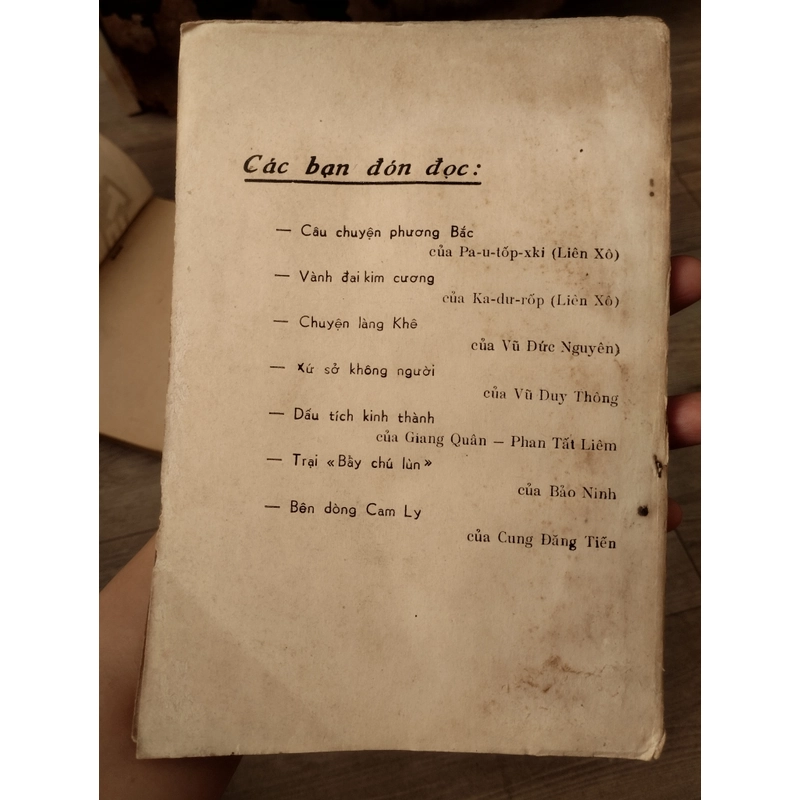 Các bạn đón đọc:
— Câu chuyện phương Bắc
của Pa-u-tốp-xki (Liên Xô)
— Vành đai kim cương
của Ka-dư-rốp (Liên Xô)
— Chuyện làng Khê
của Vũ Đức Nguyên)
— Xứ sở không người
của Vũ Duy Thông
— Dấu tích kinh thành
của Giang Quân — Phan Tất Liêm
— Trại «Bầy chú lùn»
của Bảo Ninh
— Bên dòng Cam Ly
của Cung Đăng Tiến